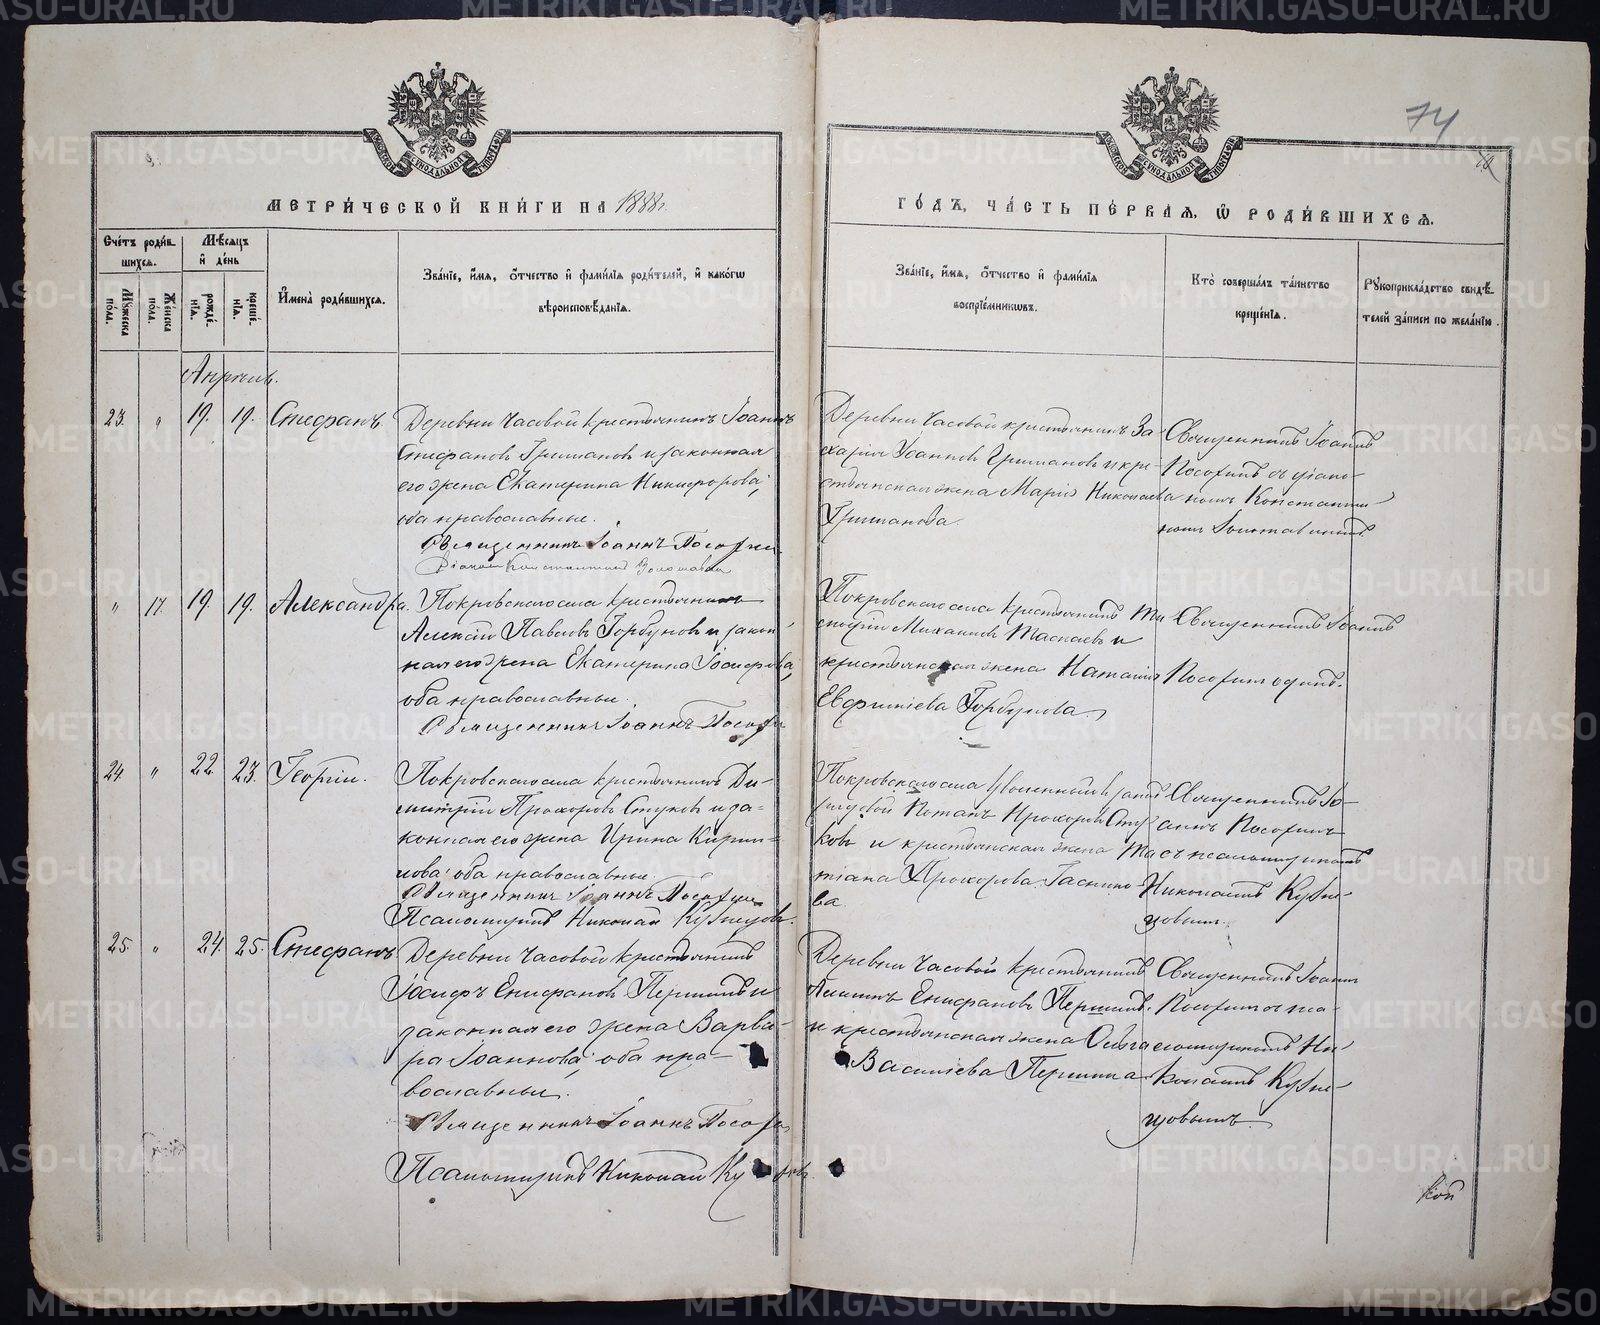 74
МЕТРИ́ЧЕСКОЙ КНИ́ГИ НА 1888 г.
ГО́ДЪ, ЧА́СТЬ ПЕ́РВАЯ, Ѽ РОДИ́ВШИХСЯ.
Сче́тъ роди́вшихся.
Мѣ́сяцъ и де́нь
Мꙋ́жеска пола.
Же́нска пола.
рожде́нїя.
креще́нїя.
Имена̀ роди́вшихся.
Зва́нїе, и́мя, ѻ́тчество и фами́лїя роди́телей, и како́гѡ
вѣроисповѣ́данїя.
Зва́нїе, и́мя, ѻ́тчество и фами́лїя
воспрїе́мникѡвъ.
Кто̀ соверша́лъ та́инство
креще́нїя.
Рꙋкоприкла́дство свидѣ́телей за́писи по жела́нїю.
Апрѣль.
23. " 19. 19. Стефанъ.
Деревни Часовой крестьянинъ Іоаннъ
Стефановъ Гришановъ и законная
его жена Екатерина Никифорова,
оба православные.
Священникъ Іоаннъ
Діаконъ Константинъ
Деревни Часовой крестьянинъ За-
харій Іоанновъ Гришановъ и кре-
стьянская жена Марія Николаева
Гришанова.
Священникъ Іоаннъ
съ діако-
номъ Константи-
номъ
" 17. 19. 19. Александра.
Покровскаго села крестьянинъ
Алексій Павловъ Горбуновъ и закон-
ная его жена Екатерина Іосифова,
оба православные.
Священникъ Іоаннъ
Покровскаго села крестьянинъ Ти-
мофій Михаиловъ и
крестьянская жена Наталія
Евфиміева Горбунова.
Священникъ Іоаннъ
одинъ.
24 " 22. 23. Георгій.
Покровскаго села крестьянинъ Ди-
митрій Прохоровъ Стуковъ и за-
конная его жена Ирина Кирил-
лова, оба православные
Священникъ Іоаннъ
Псаломщикъ Николай Кузнецовъ.
Покровскаго села уволенный въ запасъ
рядовой Потапъ Прохоровъ Сту-
ковъ и крестьянская жена Та-
тіана Прохорова
ва.
Священникъ Іо-
аннъ
съ псаломщикомъ
Николаемъ Кузне-
цовымъ.
25. " 24. 25. Стефанъ.
Деревни Часовой крестьянинъ
Іосифъ Епифановъ Першинъ и
законная его жена Варва-
ра Іоаннова, оба пра-
вославные.
Священникъ Іоаннъ
Псаломщикъ Николай
Деревни Часовой крестьянинъ
Епифановъ Першинъ
и крестьянская жена Ольга
Василіева Першина
Священникъ Іоаннъ
съ пса-
ломщикомъ Ни-
колаемъ Кузне-
цовымъ.
кой
METRIKI.GASO-URAL.RU